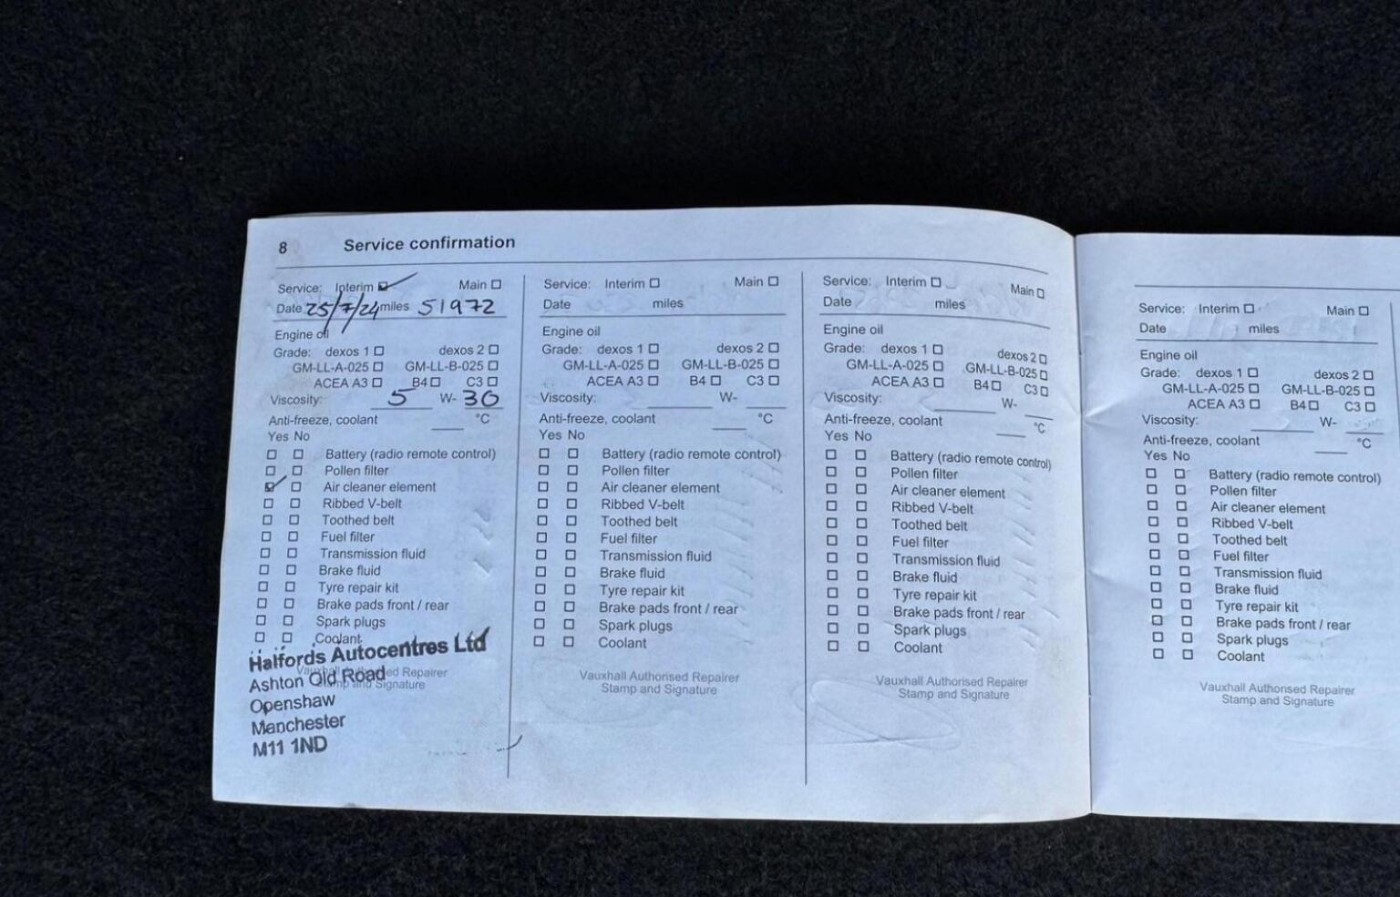 8 Service confirmation
Service: Interim ☑ Main ☐
Date 25/7/24 miles 51972
Engine oil
Grade: dexos 1 ☐ dexos 2 ☐
GM-LL-A-025 ☐ GM-LL-B-025 ☐
ACEA A3 ☐ B4 ☐ C3 ☐
Viscosity: 5 W- 30
Anti-freeze, coolant °C
Yes No
☐ ☐ Battery (radio remote control)
☐ ☐ Pollen filter
☑ ☐ Air cleaner element
☐ ☐ Ribbed V-belt
☐ ☐ Toothed belt
☐ ☐ Fuel filter
☐ ☐ Transmission fluid
☐ ☐ Brake fluid
☐ ☐ Tyre repair kit
☐ ☐ Brake pads front / rear
☐ ☐ Spark plugs
☐ ☐ Coolant
Halfords Autocentres Ltd
Ashton Old Road
Openshaw
Manchester
M11 1ND
Repairer
Signature
Service: Interim ☐ Main ☐
Date miles
Engine oil
Grade: dexos 1 ☐ dexos 2 ☐
GM-LL-A-025 ☐ GM-LL-B-025 ☐
ACEA A3 ☐ B4 ☐ C3 ☐
Viscosity: W-
Anti-freeze, coolant °C
Yes No
☐ ☐ Battery (radio remote control)
☐ ☐ Pollen filter
☐ ☐ Air cleaner element
☐ ☐ Ribbed V-belt
☐ ☐ Toothed belt
☐ ☐ Fuel filter
☐ ☐ Transmission fluid
☐ ☐ Brake fluid
☐ ☐ Tyre repair kit
☐ ☐ Brake pads front / rear
☐ ☐ Spark plugs
☐ ☐ Coolant
Vauxhall Authorised Repairer
Stamp and Signature
Service: Interim ☐ Main ☐
Date miles
Engine oil
Grade: dexos 1 ☐ dexos 2 ☐
GM-LL-A-025 ☐ GM-LL-B-025 ☐
ACEA A3 ☐ B4 ☐ C3 ☐
Viscosity: W-
Anti-freeze, coolant °C
Yes No
☐ ☐ Battery (radio remote control)
☐ ☐ Pollen filter
☐ ☐ Air cleaner element
☐ ☐ Ribbed V-belt
☐ ☐ Toothed belt
☐ ☐ Fuel filter
☐ ☐ Transmission fluid
☐ ☐ Brake fluid
☐ ☐ Tyre repair kit
☐ ☐ Brake pads front / rear
☐ ☐ Spark plugs
☐ ☐ Coolant
Vauxhall Authorised Repairer
Stamp and Signature
Service: Interim ☐ Main ☐
Date miles
Engine oil
Grade: dexos 1 ☐ dexos 2 ☐
GM-LL-A-025 ☐ GM-LL-B-025 ☐
ACEA A3 ☐ B4 ☐ C3 ☐
Viscosity: W-
Anti-freeze, coolant °C
Yes No
☐ ☐ Battery (radio remote control)
☐ ☐ Pollen filter
☐ ☐ Air cleaner element
☐ ☐ Ribbed V-belt
☐ ☐ Toothed belt
☐ ☐ Fuel filter
☐ ☐ Transmission fluid
☐ ☐ Brake fluid
☐ ☐ Tyre repair kit
☐ ☐ Brake pads front / rear
☐ ☐ Spark plugs
☐ ☐ Coolant
Vauxhall Authorised Repairer
Stamp and Signature